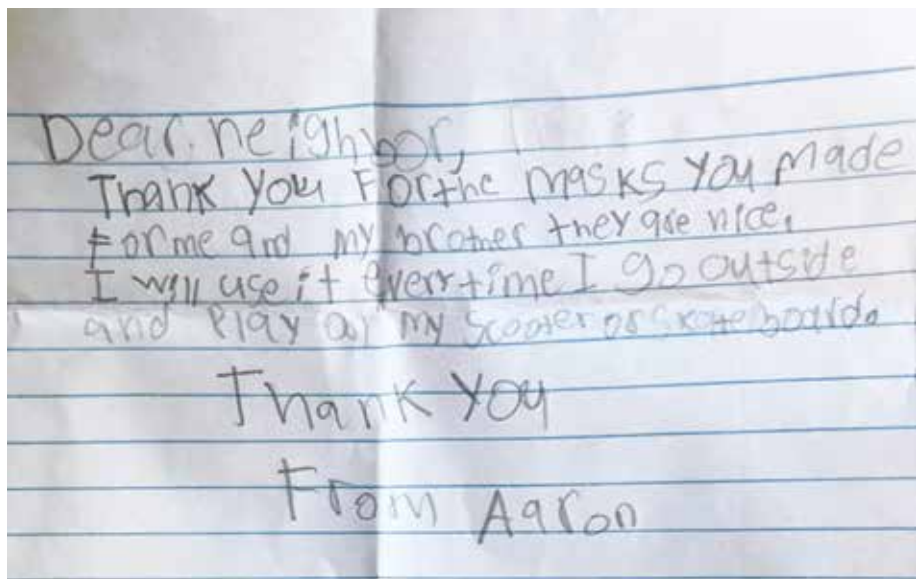 Dear neighbor,
Thank You For the masks You made
For me and my brother they are nice.
I will use it every time I go outside
and Play on my scooter or skate board.
Thank You
From Aaron